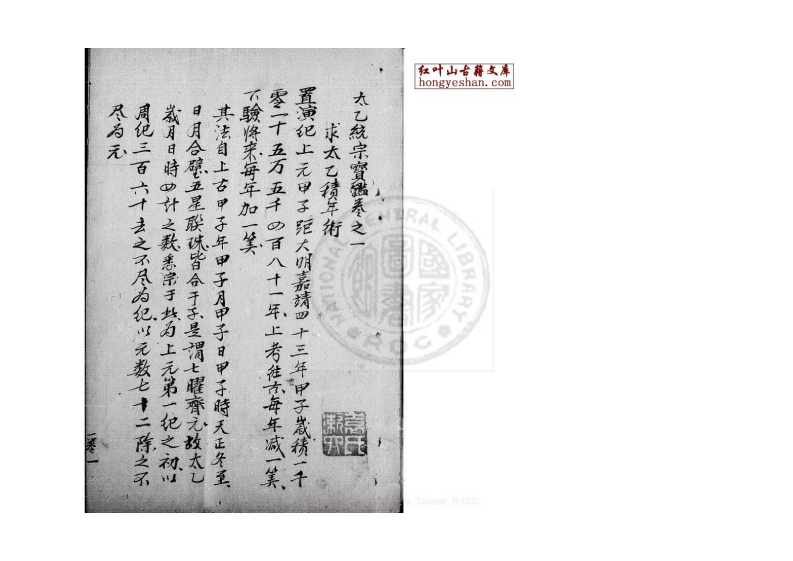 太乙統宗寶鑑卷之一
求太乙積年術
置演紀上元甲子距大明嘉請四十三年甲子歲積一千
零一十五万五千四百八十一年上考往古每年减一筭
下驗將来每年加一筭
其法自上古甲子年甲子月甲子日甲子時天正冬至
日月合璧五星聯珠皆合于子是謂七曜齊元故太乙
歲月日時四計之数悉宗于此為上元第一紀之初以
周紀三百六十去之不尽為紀以元数七十二除之不
尽為元
卷一
红叶山古籍文库
hongyeshan.com
國家圖書館
NATIONAL CENTRAL LIBRARY
R.O.C.
Taiwan R.O.C.